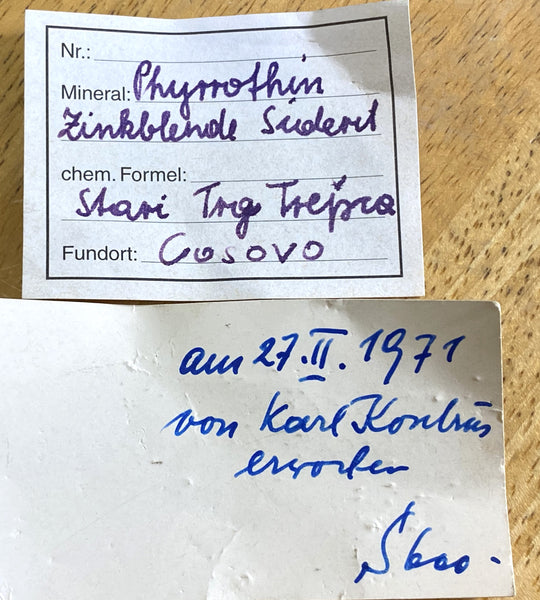 Nr.:
Mineral: Phyrrothin
Zinkblende Siderit
chem. Formel:
Stari Trg Trepca
Fundort: Cosovo
am 27.II.1971
von Karl Kontrus
erworben